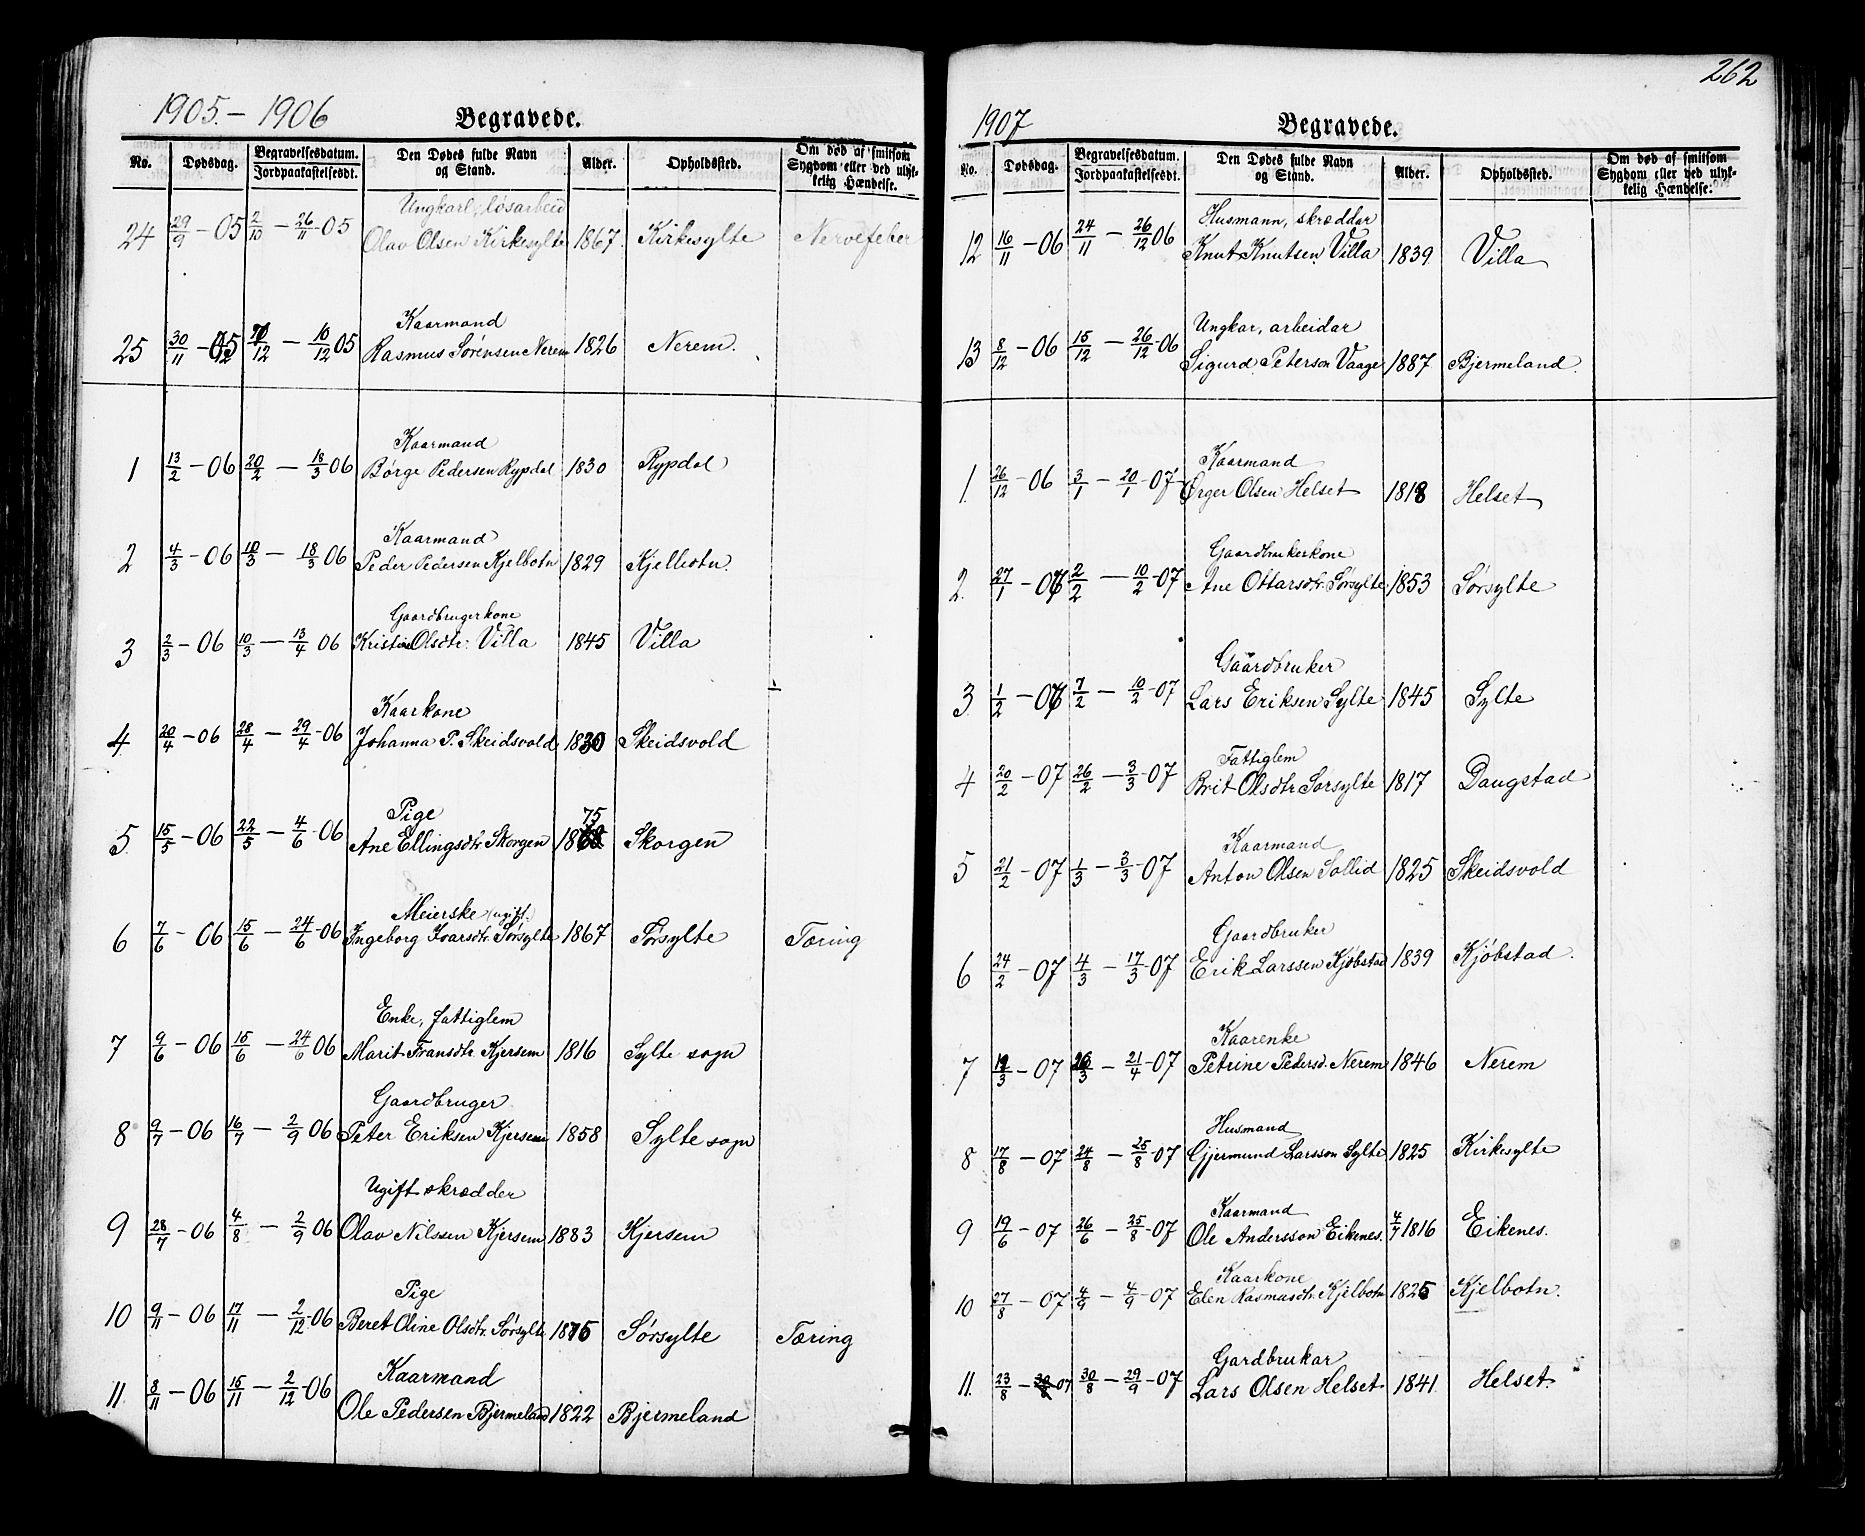 1905.- 1906 Begravede.
No. Dødsdag. Begravelsesdatum. Jordpaakastelsesdt. Den Dødes fulde Navn og Stand. Alder. Opholdssted. Om død af smitsom Sygdom eller ved ulykkelig Hændelse.
Ungkarl, løsarbeid
24 29/9 - 05 2/10 - 26/11 05 Olav Olsen Kirkesylte 1867 Kirkesylte Nervefeber
Kaarmand
25 30/11 - 05 /12 - 10/12 05 Rasmus Sørensen Nerem 1826 Nerem.
Kaarmand
1 13/2 - 06 20/2 - 18/3 06 Børge Pedersen Rypdal 1830 Rypdal
Kaarmand
2 4/3 - 06 10/3 - 18/3 06 Peder Pedersen Kjelbotn 1829 Kjelbotn.
Gaardbrugerkone
3 2/3 - 06 10/3 - 13/4 06 Kristine Olsdtr. Villa 1845 Villa
Kaarkone
4 20/4 - 06 28/4 - 29/4 - 06 Johanna P. Skeidsvold 1830 Skeidsvold
Pige 75
5 15/5 - 06 22/5 - 4/6 - 06 Ane Ellingsdtr Skorgen 18 Skorgen
Meierske (ugift.)
6 7/6 - 06 15/6 - 24/6 - 06 Ingeborg Ivarsdtr. Sørsylte 1867 Sørsylte Tæring
Enke, fattiglem
7 9/6 - 06 15/6 - 24/6 06 Marit Fransdtr. Kjersem 1816 Sylte sogn
Gaardbruger
8 9/7 - 06 16/7 - 2/9 06 Peter Eriksen Kjersem 1858 Sylte sogn
Ugift skrædder
9 28/7 - 06 4/8 - 2/9 06 Olav Nilssen Kjersem 1883 Kjersem
Pige
10 9/11 - 06 17/11 - 2/12 - 06 Beret Oline Olsdtr. Sørsylte 1875 Sørsylte Tæring
Kaarmand
11 8/11 - 06 15/11 - 2/12 - 06 Ole Pedersen Bjermeland 1822 Bjermeland
262
1907 Begravede.
No. Dødsdag. Begravelsesdatum. Jordpaakastelsesdt. Den Dødes fulde Navn og Stand. Alder. Opholdssted. Om død af smitsom Sygdom eller ved ulykkelig Hændelse:
Husmann, skræddar
12 16/11 - 06 24/11 - 26/12 06 Knut Knutsen Villa 1839 Villa
Ungkar, arbeidar
13 8/12 - 06 15/12 - 26/12 - 06 Sigurd Peterson Vaage 1887 Bjermeland.
Kaarmand
1. 26/12 - 06 3/1 - 20/1 - 07 Ørger Olsen Helset 1818 Helset
Gaardbrukerkone
2. 27/1 - 07 2/2 - 10/2 - 07 Ane Ottarsdtr. Sørsylte 1853 Sørsylte
Gaardbruker
3. 1/2 - 07 7/2 - 10/2 - 07 Lars Eriksen Sylte 1845 Sylte
Fattiglem
4 20/2 - 07 26/2 - 3/3 - 07 Brit Olsdtr Sørsylte 1817 Daugstad
Kaarmand
5 21/2 - 07 1/3 - 3/3 - 07 Anton Olsen Sollid 1825 Skeidsvold
Gaardbruker
6 24/2 - 07 4/3 - 17/3 - 07 Erik Larssen Kjøbstad 1839 Kjøbstad.
Kaarenke
7 /3 - 07 /3 - 21/4 - 07 Petrine Pedersd. Nerem 1846 Nerem
Husmand
8 17/8 - 07 24/8 - 25/8 - 07 Gjermund Larsson Sylte 1825 Kirkesylte
Kaarmand
9 19/6 - 07 26/6 - 25/8 - 07 Ole Andersson Eikenes. 4/7 1816 Eikenes.
Kaarkone
10 27/8 - 07 4/9 - 4/9 - 07 Elen Rasmusdtr. Kjelbotn 1826 Kjelbotn.
Gardbrukar
11. 23/8 - 07 30/8 - 29/9 - 07 Lars Olsen Helset 1841. Helset.